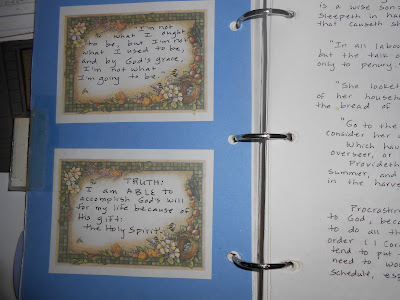 I'm not
what I ought
to be, but I'm not
what I used to be,
and by God's grace,
I'm not what
I'm going to be.
TRUTH:
I am ABLE to
accomplish God's will
for my life because of
His gift:
the Holy Spirit.
is a wise son:
sleepeth in har
that causeth sh
"In all labou
but the talk o
only to penury."
"She looket
of her househo
the bread of
"Go to the
consider her w
Which hav
overseer, or
Provideth
summer, and
in the harve
Procrastin
to God, beca
to do all th
order (I Cor
tend to put
need to wor
schedule, esp